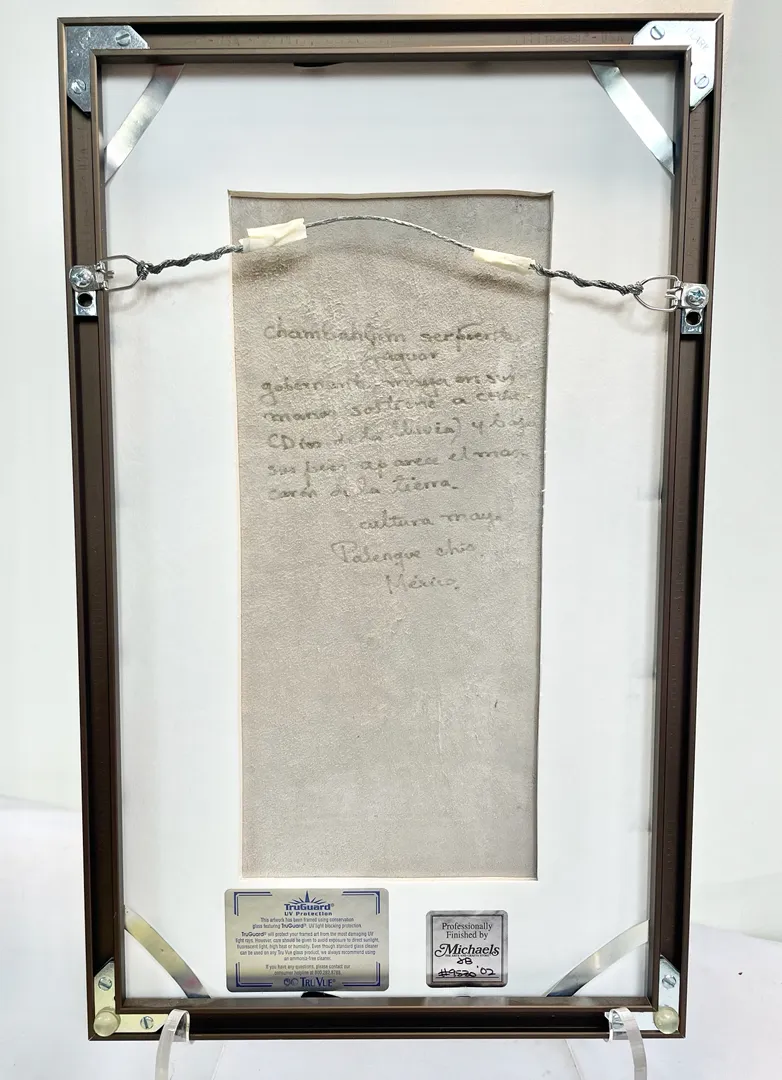 chambahlum serpiente
jaguar
gobernante maya en sus
manos sostiene a
(Dios de la lluvia) y bajo
sus pies aparece el mas-
carón de la tierra.
cultura maya
Palenque chis.
México.
TruGuard®
UV Protection
This artwork has been framed using conservation
glass featuring TruGuard® UV light blocking protection
TruGuard® will protect your framed art from the most damaging UV
light rays. However, care should be given to avoid exposure to direct sunlight,
fluorescent light, high heat or humidity. Even though standard glass cleaner
can be used on any Tru Vue glass product, we always recommend using
an ammonia-free cleaner.
If you have any questions, please contact our
consumer helpline at
TRU VUE®
Professionally
Finished by
Michaels
THE ARTS AND CRAFTS STORE
#9520 '02